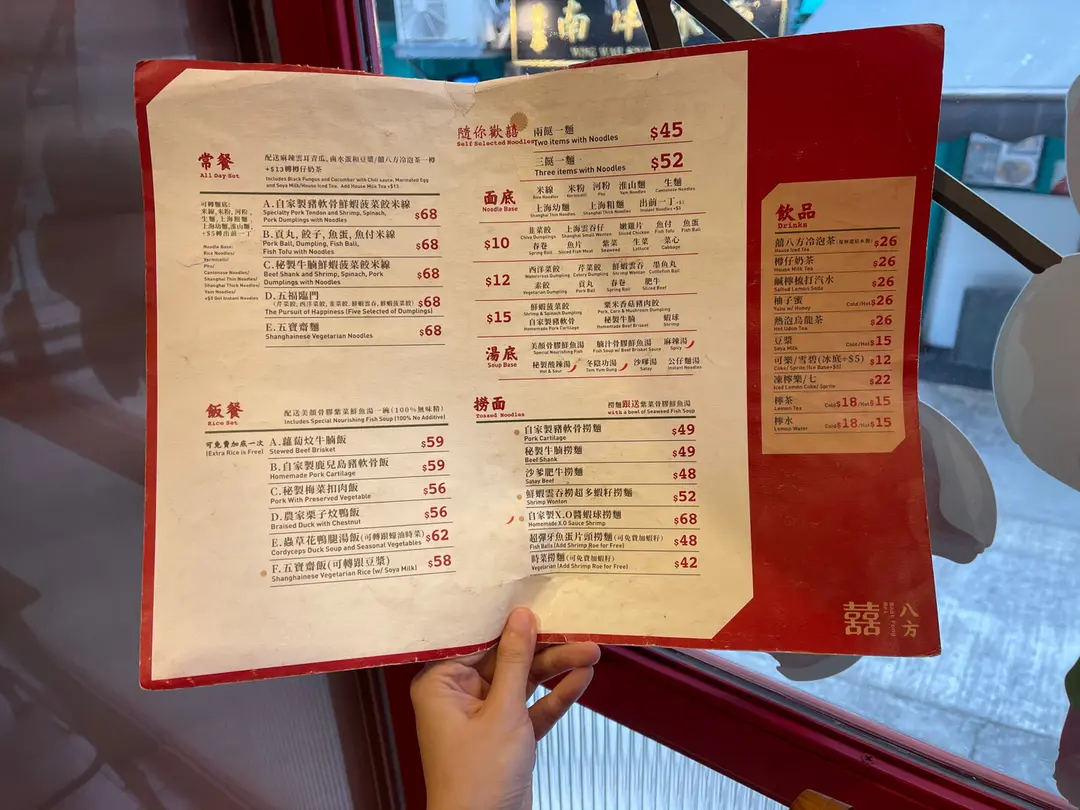 南坤
常餐
All Day Set
配送麻辣雲耳青瓜,鹵水蛋和豆漿/囍八方冷泡茶一樽
+$13轉樽仔奶茶
Includes Black Fungus and Cucumber with Chili sauce, Marinated Egg
and Soya Milk/House Iced Tea. Add House Milk Tea +$13.
可轉麵底:
米線,米粉,河粉,
生麵,上海粗麵
上海幼麵,淮山麵,
+$5轉出前一丁
Noodle Base:
Rice Noodles/
Vermicelli/
Pho/
Cantonese Noodles/
Shanghai Thin Noodles/
Shanghai Thick Noodles/
Yam Noodles/
+$5 Dot Instant Noodles
A.自家製豬軟骨鮮蝦菠菜餃米線 $68
Specialty Pork Tendon and Shrimp, Spinach,
Pork Dumplings with Noodles
B.貢丸,餃子,魚蛋,魚付米線 $68
Pork Ball, Dumpling, Fish Ball,
Fish Tofu with Noodles
C.秘製牛腩鮮蝦菠菜餃米線 $68
Beef Shank and Shrimp, Spinach, Pork
Dumplings with Noodles
D.五福臨門 $68
(芹菜餃,西洋菜餃,韮菜餃,鮮蝦雲吞,鮮蝦菠菜餃)
The Pursuit of Happiness (Five Selected of Dumplings)
E.五寶齋麵 $68
Shanghainese Vegetarian Noodles
飯餐
Rice Set
配送美顏骨膠紫菜鮮魚湯一碗(100%無味精)
Includes Special Nourishing Fish Soup (100% No Additive)
可免費加底一次
(Extra Rice is Free)
A.蘿蔔炆牛腩飯 $59
Stewed Beef Brisket
B.自家製鹿兒島豬軟骨飯 $59
Homemade Pork Cartilage
C.秘製梅菜扣肉飯 $56
Pork With Preserved Vegetable
D.農家栗子炆鴨飯 $56
Braised Duck with Chestnut
E.蟲草花鴨腿湯飯(可轉跟蠔油時菜) $62
Cordyceps Duck Soup and Seasonal Vegetables
F.五寶齋飯(可轉跟豆漿) $58
Shanghainese Vegetarian Rice (w/ Soya Milk)
隨你歡囍
Self Selected Noodles
兩餸一麵 $45
Two items with Noodles
三餸一麵 $52
Three items with Noodles
面底
Noodle Base
米線 米粉 河粉 淮山麵 生麵
Rice Noodles Vermicelli Pho Yam Noodles Cantonese Noodles
上海幼麵 上海粗麵 出前一丁+$5
Shanghai Thin Noodles Shanghai Thick Noodles Instant Noodles
$10
韮菜餃 上海雲吞仔 嫩雞片 魚付 魚蛋
Chive Dumpling Shanghai Small Wonton Sliced Chicken Fish Tofu Fish Ball
春卷 魚片 紫菜 生菜 菜心
Spring Roll Sliced Fish Meat Seaweed Lettuce Cabbage
$12
西洋菜餃 芹菜餃 鮮蝦雲吞 墨魚丸
Watercress Dumpling Celery Dumpling Shrimp Wonton Cuttlefish Ball
素餃 貢丸 春卷 肥牛
Vegetarian Dumpling Pork Ball Spring Roll Sliced Beef
$15
鮮蝦菠菜餃 粟米香菇豬肉餃
Shrimp & Spinach Dumpling Pork, Corn & Mushroom Dumpling
自家製軟骨 秘製牛腩 蝦球
Homemade Pork Cartilage Homemade Beef Brisket Shrimp
湯底
Soup Base
美顏骨膠鮮魚湯 腩汁骨膠鮮魚湯 麻辣湯
Special Nourishing Fish Fish Soup w/ Beef Brisket Sauce Spicy
秘製酸辣湯 冬陰功湯 沙嗲湯 公仔麵湯
Hot & Sour Tom Yum Gung Satay Instant Noodles
撈面
Tossed Noodles
撈麵跟送紫菜骨膠鮮魚湯
with a bowl of Seaweed Fish Soup
自家製豬軟骨撈麵 $49
Pork Cartilage
秘製牛腩撈麵 $49
Beef Shank
沙爹肥牛撈麵 $48
Satay Beef
鮮蝦雲吞撈超多蝦籽撈麵 $52
Shrimp Wonton
自家製X.O醬蝦球撈麵 $68
Homemade X.O Sauce Shrimp
超彈牙魚蛋片頭撈麵(可免費加蝦籽) $48
Fish Balls (Add Shrimp Roe for Free)
時菜撈麵(可免費加蝦籽) $42
Vegetarian (Add Shrimp Roe for Free)
飲品
Drinks
囍八方冷泡茶 $26
House Iced Tea
樽仔奶茶 $26
House Milk Tea
鹹檸梳打汽水 $26
Salted Lemon Soda
柚子蜜 Cold/Hot $26
Yuzu w/ Honey
熱泡烏龍茶 $26
Hot Oolon Tea
豆漿 Cold/Hot $15
Soya Milk
可樂/雪碧(冰底+$5) $12
Coke/ Sprite (Ice Base+$5)
凍檸樂/七 $22
Iced Lemon Coke/ Sprite
檸茶 Cold $18/Hot $15
Lemon Tea
檸水 Cold $18/Hot $15
Lemon Water
囍
八方